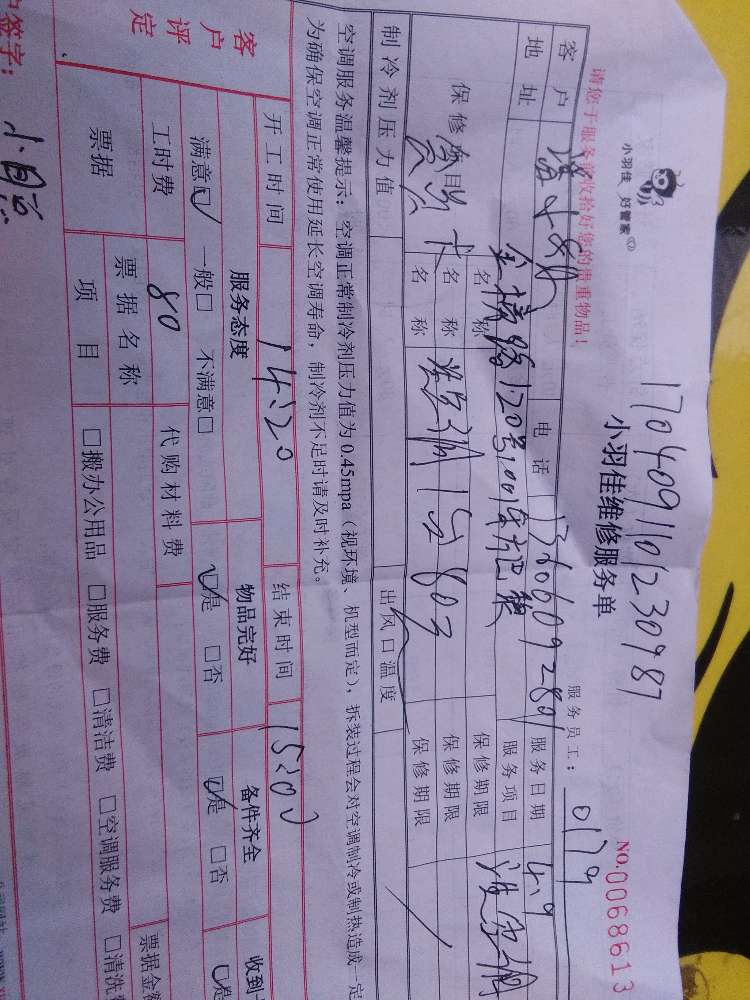 1704091101230987
小羽佳 好管家
小羽佳维修服务单
NO.0068613
请您于服务前收拾好您的贵重物品!
服务员工: 0179
客户
电话 13606092801
服务日期 4.9
地址 120号
服务项目 洗空调
保修
名称
保修期限
名称 洗空调1台80元
保修期限
名称
保修期限
制冷剂压力值
出风口温度
空调服务温馨提示: 空调正常制冷剂压力值为0.45mpa(视环境、机型而定), 拆装过程会对空调制冷或制热造成一定
为确保空调正常使用延长空调寿命, 制冷剂不足时请及时补充。
开工时间 14:20 结束时间 15:00
客户评定
服务态度 物品完好 备件齐全 收到
满意☑ 一般□ 不满意□ ☑是 □否 ☑是 □否 ☑是
工时费 80 代购材料费
票据
票据名称
票据金额
项目 □搬办公用品 □服务费 □清洁费 □空调服务费 □清洗
签字: